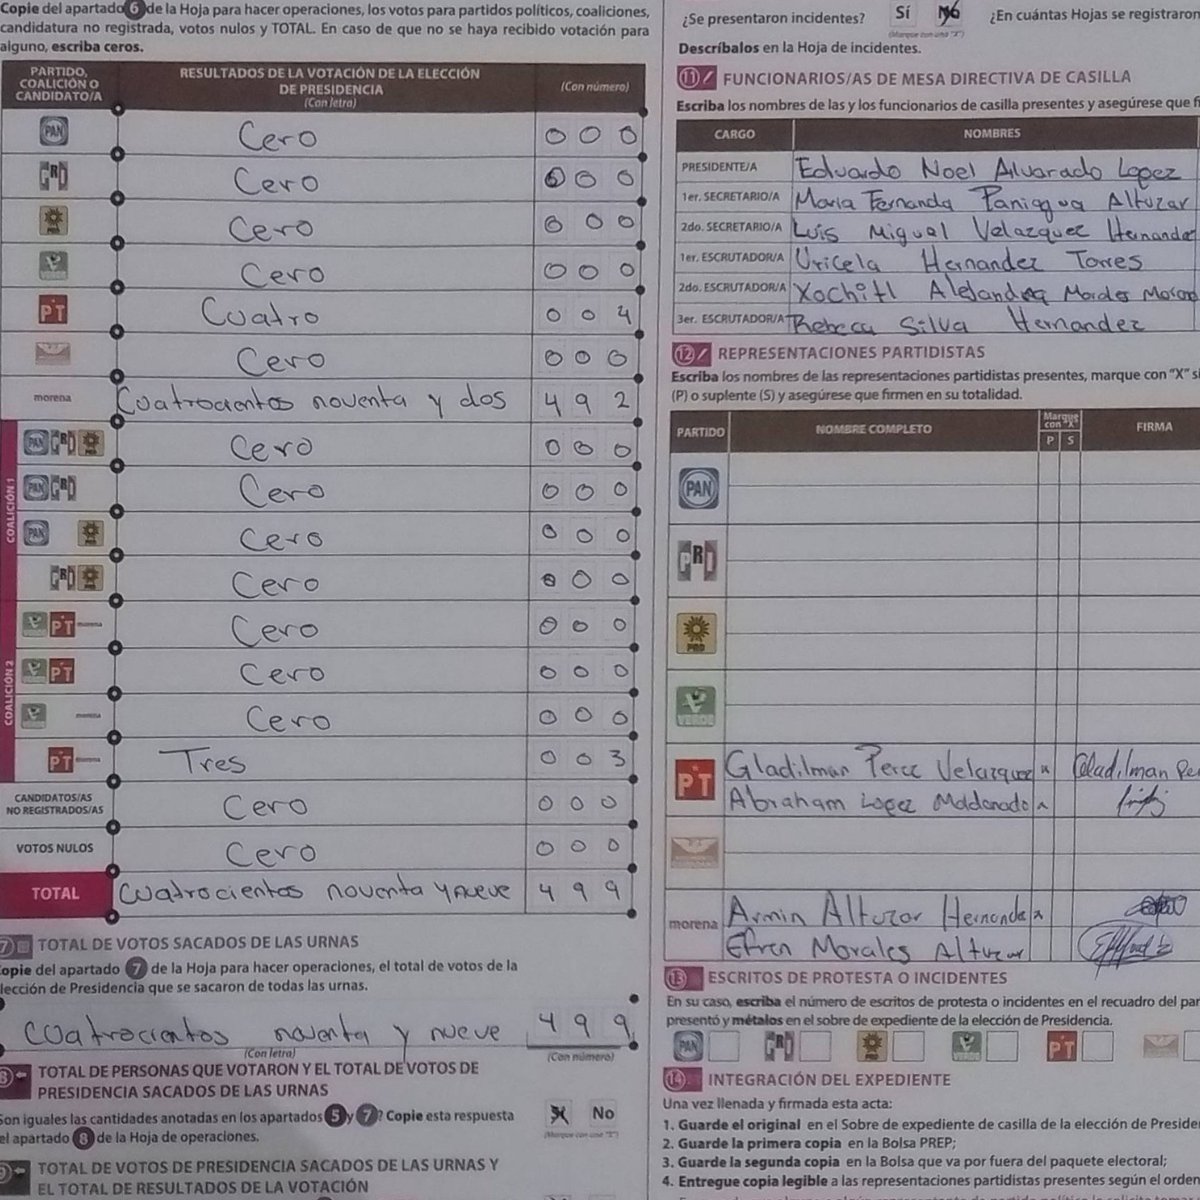 Copie del apartado 6 de la Hoja para hacer operaciones, los votos para partidos políticos, coaliciones,
candidatura no registrada, votos nulos y TOTAL. En caso de que no se haya recibido votación para
alguno, escriba ceros.
PARTIDO, COALICIÓN O CANDIDATO/A
RESULTADOS DE LA VOTACIÓN DE LA ELECCIÓN DE PRESIDENCIA
(Con letra)
(Con número)
PAN Cero 0 0 0
PRI Cero 0 0 0
PRD Cero 0 0 0
VERDE Cero 0 0 0
PT Cuatro 0 0 4
Cero 0 0 0
morena Cuatrocientos noventa y dos 4 9 2
COALICIÓN 1
PAN PRI PRD Cero 0 0 0
PAN PRI Cero 0 0 0
PAN PRD Cero 0 0 0
PRI PRD Cero 0 0 0
COALICIÓN 2
VERDE PT morena Cero 0 0 0
VERDE PT Cero 0 0 0
VERDE morena Cero 0 0 0
PT morena Tres 0 0 3
CANDIDATOS/AS NO REGISTRADOS/AS Cero 0 0 0
VOTOS NULOS Cero 0 0 0
TOTAL Cuatrocientos noventa y nueve 4 9 9
7 TOTAL DE VOTOS SACADOS DE LAS URNAS
Copie del apartado 7 de la Hoja para hacer operaciones, el total de votos de la
elección de Presidencia que se sacaron de todas las urnas.
Cuatrocientos noventa y nueve 4 9 9
(Con letra) (Con número)
8 TOTAL DE PERSONAS QUE VOTARON Y EL TOTAL DE VOTOS DE
PRESIDENCIA SACADOS DE LAS URNAS
Son iguales las cantidades anotadas en los apartados 5 y 7? Copie esta respuesta
el apartado 8 de la Hoja de operaciones.
Sí No
(Marque con una "X")
9 TOTAL DE VOTOS DE PRESIDENCIA SACADOS DE LAS URNAS Y
EL TOTAL DE RESULTADOS DE LA VOTACIÓN
¿Se presentaron incidentes? Sí No ¿En cuántas Hojas se registraron
(Marque con una "X")
Descríbalos en la Hoja de incidentes.
11 FUNCIONARIOS/AS DE MESA DIRECTIVA DE CASILLA
Escriba los nombres de las y los funcionarios de casilla presentes y asegúrese que fi
CARGO NOMBRES
PRESIDENTE/A Eduardo Noel Alvarado Lopez
1er. SECRETARIO/A Maria Fernanda Paniagua Altuzar
2do. SECRETARIO/A Luis Miguel Velazquez Hernandez
1er. ESCRUTADOR/A Uricela Hernandez Torres
2do. ESCRUTADOR/A Xochitl Alejandra
3er. ESCRUTADOR/A Rebeca Silva Hernandez
12 REPRESENTACIONES PARTIDISTAS
Escriba los nombres de las representaciones partidistas presentes, marque con "X" si
(P) o suplente (S) y asegúrese que firmen en su totalidad.
PARTIDO NOMBRE COMPLETO Marque con "X" P S FIRMA
PAN
PRI
PRD
VERDE
PT Gladilman Perez Velazquez x Gladilman Pe
Abraham Lopez Maldonado x
morena Armin Altuzar Hernande x
Efren Morales Altuzar
13 ESCRITOS DE PROTESTA O INCIDENTES
En su caso, escriba el número de escritos de protesta o incidentes en el recuadro del par
presentó y métalos en el sobre de expediente de la elección de Presidencia.
PAN PRI PRD VERDE PT
14 INTEGRACIÓN DEL EXPEDIENTE
Una vez llenada y firmada esta acta:
1. Guarde el original en el Sobre de expediente de casilla de la elección de Preside
2. Guarde la primera copia en la Bolsa PREP;
3. Guarde la segunda copia en la Bolsa que va por fuera del paquete electoral;
4. Entregue copia legible a las representaciones partidistas presentes según el orden